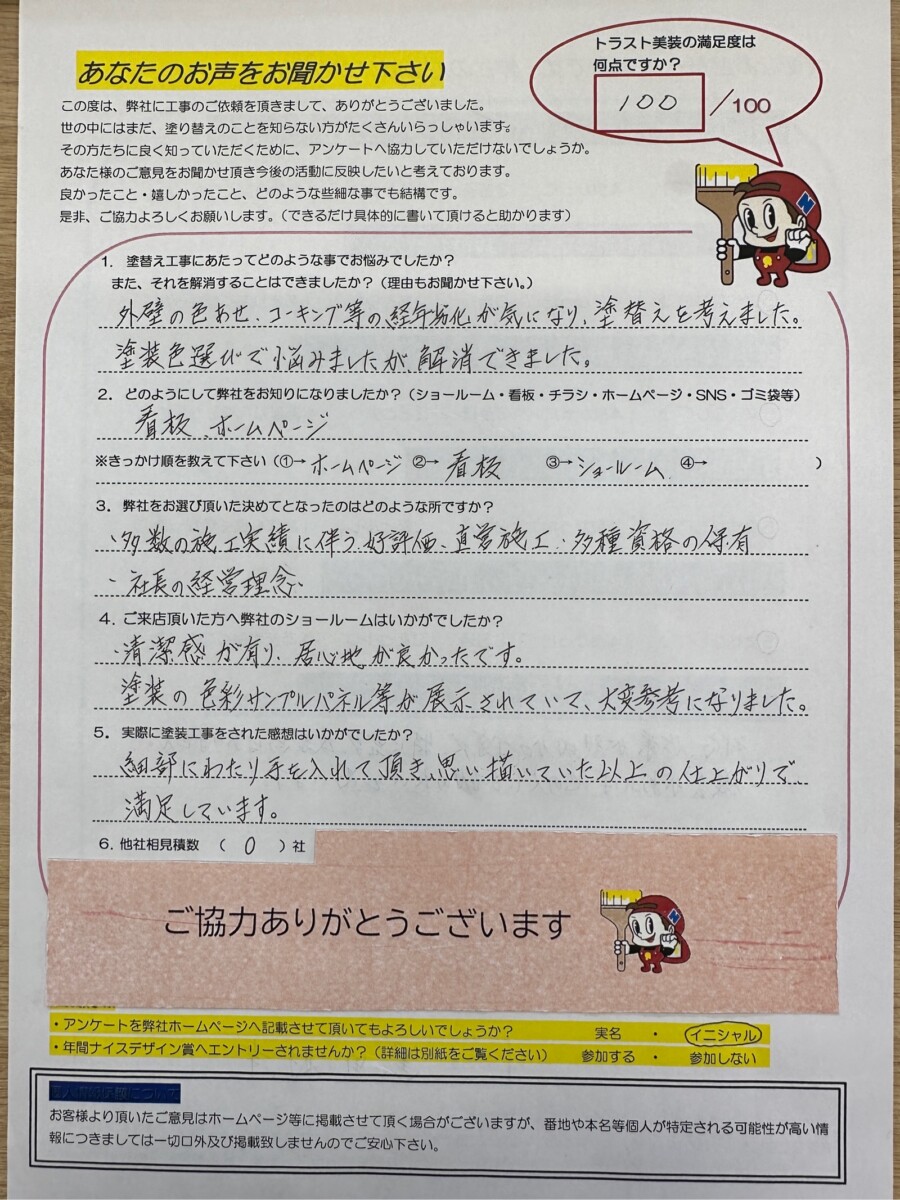 あなたのお声をお聞かせ下さい
トラスト美装の満足度は
何点ですか？
100 /100
この度は、弊社に工事のご依頼を頂きまして、ありがとうございました。
世の中にはまだ、塗り替えのことを知らない方がたくさんいらっしゃいます。
その方たちに良く知っていただくために、アンケートへ協力していただけないでしょうか。
あなた様のご意見をお聞かせ頂き今後の活動に反映したいと考えております。
良かったこと・嬉しかったこと、どのような些細な事でも結構です。
是非、ご協力よろしくお願いします。（できるだけ具体的に書いて頂けると助かります）
N
1. 塗替え工事にあたってどのような事でお悩みでしたか？
また、それを解消することはできましたか？（理由もお聞かせ下さい。）
外壁の色あせ、コーキング等の経年劣化が気になり、塗替えを考えました。
塗装色選びで悩みましたが、解消できました。
2. どのようにして弊社をお知りになりましたか？（ショールーム・看板・チラシ・ホームページ・SNS・ゴミ袋等）
看板、ホームページ
※きっかけ順を教えて下さい（①→ホームページ ②→看板 ③→ショールーム ④→ ）
3. 弊社をお選び頂いた決めてとなったのはどのような所ですか？
・多数の施工実績に伴う好評価、直営施工、多種資格の保有
・社長の経営理念、
4. ご来店頂いた方へ弊社のショールームはいかがでしたか？
・清潔感が有り、居心地が良かったです。
塗装の色彩サンプルパネル等が展示されていて、大変参考になりました。
5. 実際に塗装工事をされた感想はいかがでしたか？
細部にわたり手を入れて頂き、思い描いていた以上の仕上がりで
満足しています。
6. 他社相見積数 （ 0 ）社
ご協力ありがとうございます
N
・アンケートを弊社ホームページへ記載させて頂いてもよろしいでしょうか？ 実名 ・ イニシャル
・年間ナイスデザイン賞へエントリーされませんか？（詳細は別紙をご覧ください） 参加する ・ 参加しない
お客様より頂いたご意見はホームページ等に掲載させて頂く場合がございますが、番地や本名等個人が特定される可能性が高い情
報につきましては一切口外及び掲載致しませんのでご安心下さい。